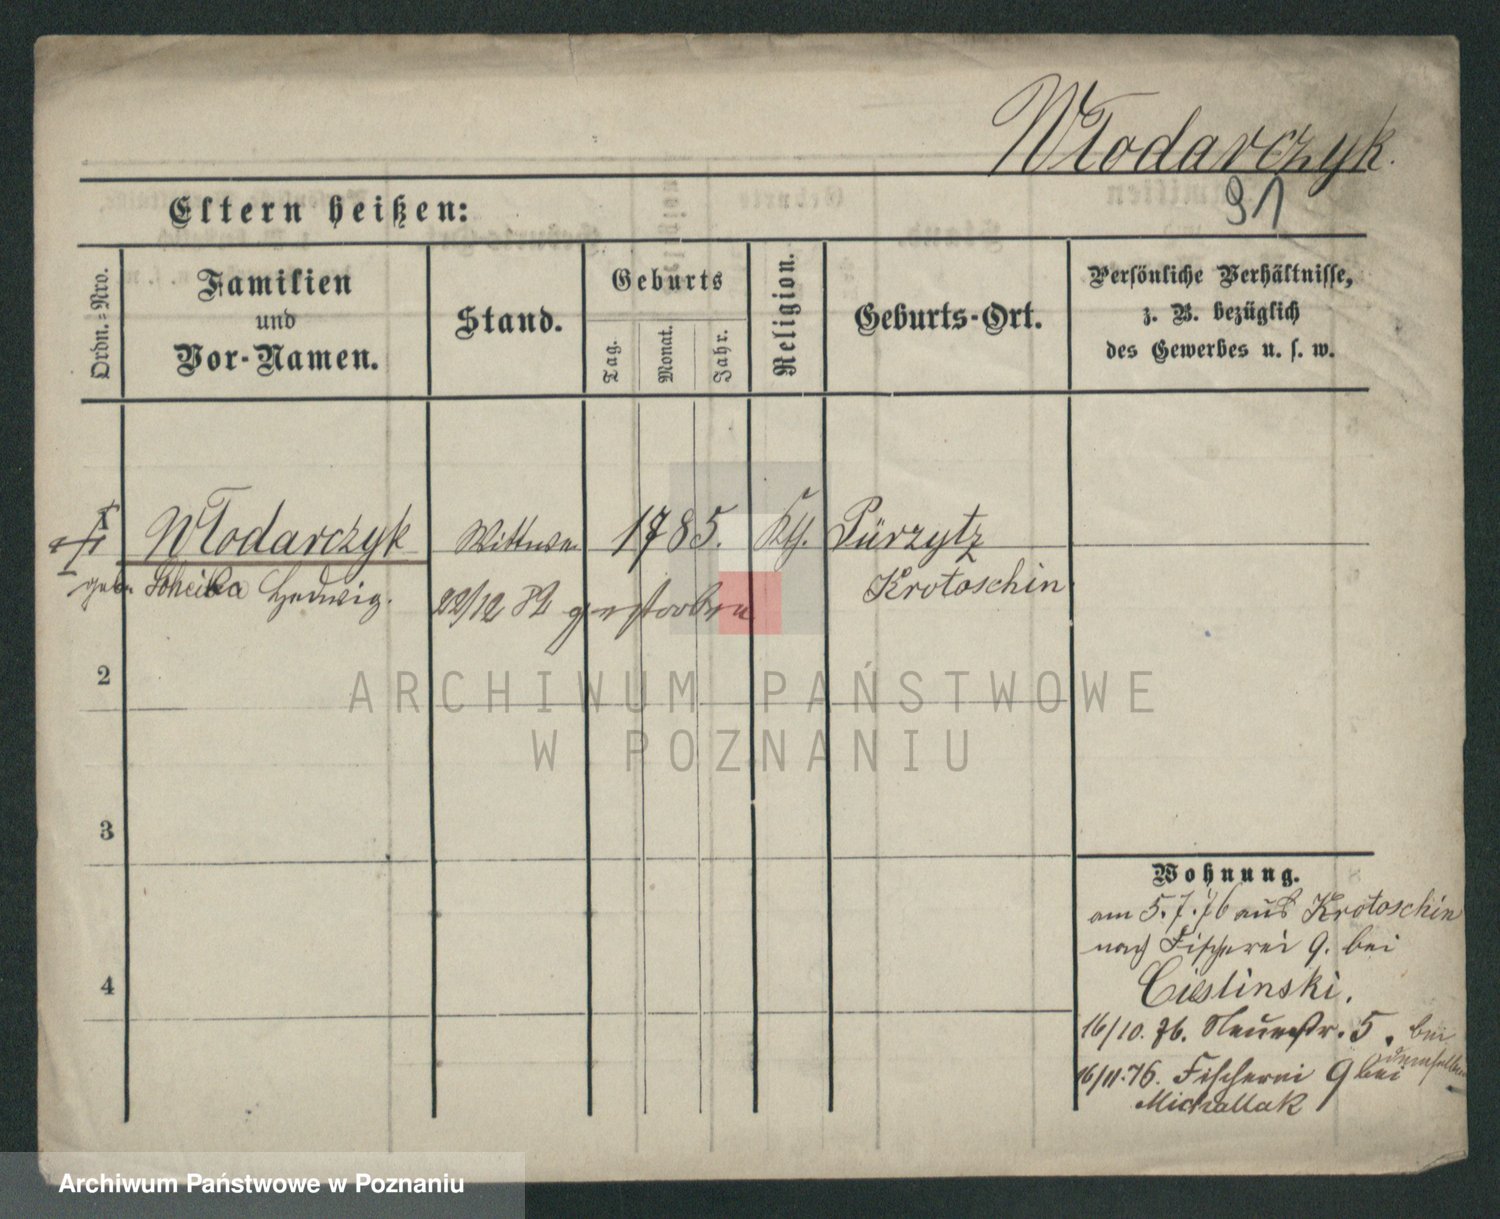 Włodarczyk.
91
Eltern heißen:
Ordn.-Nro.
Familien
und
Vor-Namen.
Stand.
Geburts
Tag.
Monat.
Jahr.
Religion.
Geburts-Ort.
Persönliche Verhältnisse,
z. B. bezüglich
des Gewerbes u. s. w.
1
Włodarczyk Wittwe 1785. Kth. Pürzytz
Krotoschin
geb. Hedwig. 22/12 82 gestorben
2
3
4
Wohnung.
am 5.7.76 aus Krotoschin
nach Fischerei 9. bei
Cieslinski.
16/10. 76. Neuestr. 5. bei
demselben
16/11.76. Fischerei 9 bei
Michallak
ARCHIWUM PAŃSTWOWE
W POZNANIU
Archiwum Państwowe w Poznaniu